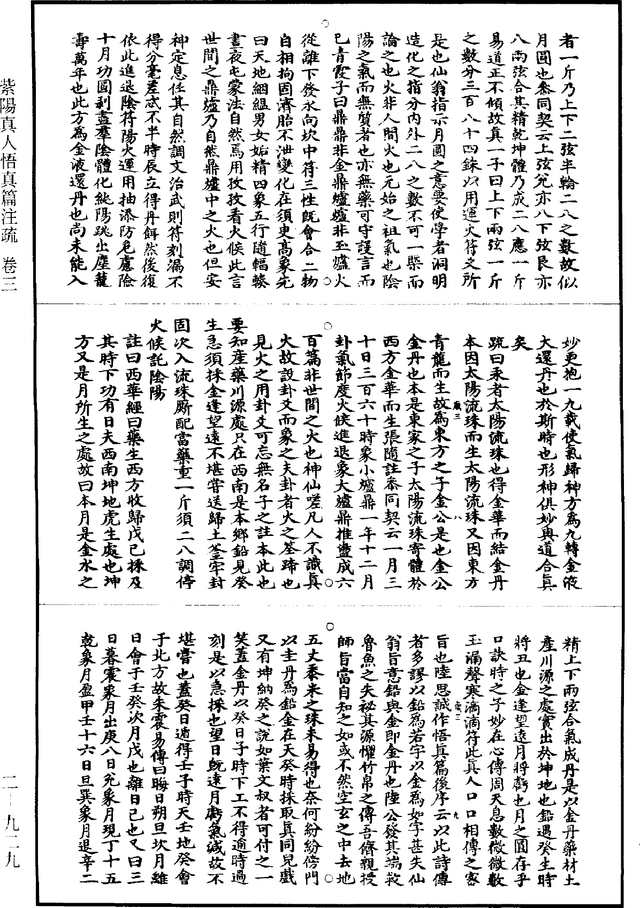 者一斤乃上下二弦半輪二八之數故似
月圓也叅同契云上弦兌亦八下弦艮亦
八兩弦合其精乾坤體乃成二八應一斤
易道正不傾故真一子曰上下兩弦一斤
之數分三百八十四銖以用運火符爻所
是也仙翁指示月圓之意要使學者洞明
造化之指分內外二八之數不可一槩而
論之也火非人間火也元始之祖氣也陰
陽之氣而無質者也亦無藥可守謹言而
已青霞子曰鼎鼎非金鼎爐爐非玉爐火
從離下發水向坎中符三性既會合二物
自相拘固濟胎不泄變化在須臾高象先
曰天地絪縕男女姤精四象五行隨輻輳
晝夜屯蒙法自然焉用孜孜看火候此言
世間之鼎爐乃自然鼎爐中之火也但安
神定息任其自然調文治武則符刻漏不
得分毫差忒不半時辰立得丹餌然後復
依此進退陰符陽火運用抽添防危慮險
十月功圓剥盡羣陰體化純陽跳出塵籠
壽萬年也此方為金液還丹也尚未能入
妙更抱一九載使氣歸神方為九轉金液
大還丹也於斯時也形神俱妙與道合真
矣
疏曰汞者太陽流珠也得金華而結金丹
本因太陽流珠而生太陽流珠又因東方
青龍而生故為東方之子金公是也金公
金丹也本是東家之子太陽流珠寄體於
西方金華而生張隨註叅同契云一月三
十日三百六十時象小爐鼎一年十二月
卦氣節度火候進退象大爐鼎推盡成六
百篇非世間之火也神仙嗟凡人不識真
火故設卦爻而象之夫卦者火之筌蹄也
見火之用卦爻可忘無名子之註本此也
要知産藥川源處只在西南是本鄉鉛見癸
生急須採金逢望遠不堪嘗送歸土釜牢封
固次入流珠厮配當藥重一斤須二八調停
火候託陰陽
註曰西華經曰藥生西方收歸戊己採及
其時下功有日夫西南坤地虎生處也坤
方又是月所生之處故曰本月是金水之
精上下兩弦合氣成丹是以金丹藥材土
產川源之處實出於坤地也鉛遇癸生時
將丑也金逢望遠月將虧也月之圓存乎
口訣時之子妙在心傳周天息數微微數
玉漏聲寒滴滴符此真人口口相傳之家
旨也陸思誠作悟真篇後序云以此詩傳
者多謬以鉛為若字以金為如字甚失仙
翁旨意鉛與金即金丹也陸公發其端救
魯魚之失祕其源懼竹帛之傳吾儕親授
師旨當自知之如或不然空玄之中去地
五丈黍米之珠未易得也奈何紛紛傍門
以主丹為鉛金在天癸時採取真同兒戲
又有坤納癸之說如葉文叔者可付之一
笑蓋金丹以癸日子時下工不得逾時過
刻是以急採也望日既遠月虧氣減故不
堪嘗也蓋癸日遁得壬子時天壬地癸會
于北方故朱震易傳曰晦日朔旦坎月離
日會于壬癸次月戊也離日己也又曰三
日暮震象月出庚八日兌象月現丁十五
乾象月盈甲壬十六日旦巽象月退辛二
紫陽真人悟真篇注疏 卷三
二-九二九